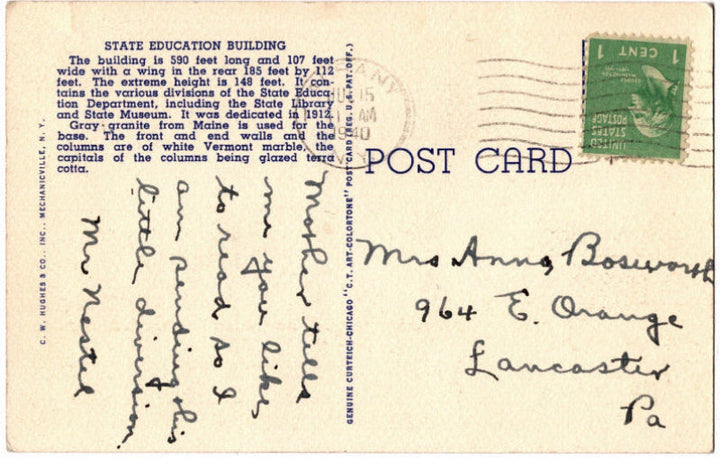 STATE EDUCATION BUILDING
The building is 590 feet long and 107 feet
wide with a wing in the rear 185 feet by 112
feet. The extreme height is 148 feet. It con-
tains the various divisions of the State Educa-
tion Department, including the State Library
and State Museum. It was dedicated in 1912.
Gray-granite from Maine is used for the
base. The front and end walls and the
columns are of white Vermont marble, the
capitals of the columns being glazed terra
cotta.
Mother tells
me you like
to read so I
am sending this
little diversion.
Mr Nestel
C. W. HUGHES & CO., INC., MECHANICVILLE, N. Y.
GENUINE CURTEICH-CHICAGO "C.T. ART-COLORTONE" POST CARD (REG. U.S. PAT. OFF.)
ALBANY
15
AM
1940
N.Y.
1 CENT 1
UNITED
STATES
POSTAGE
POST CARD
Mrs Anna Bosworth
964 E. Orange
Lancaster
Pa